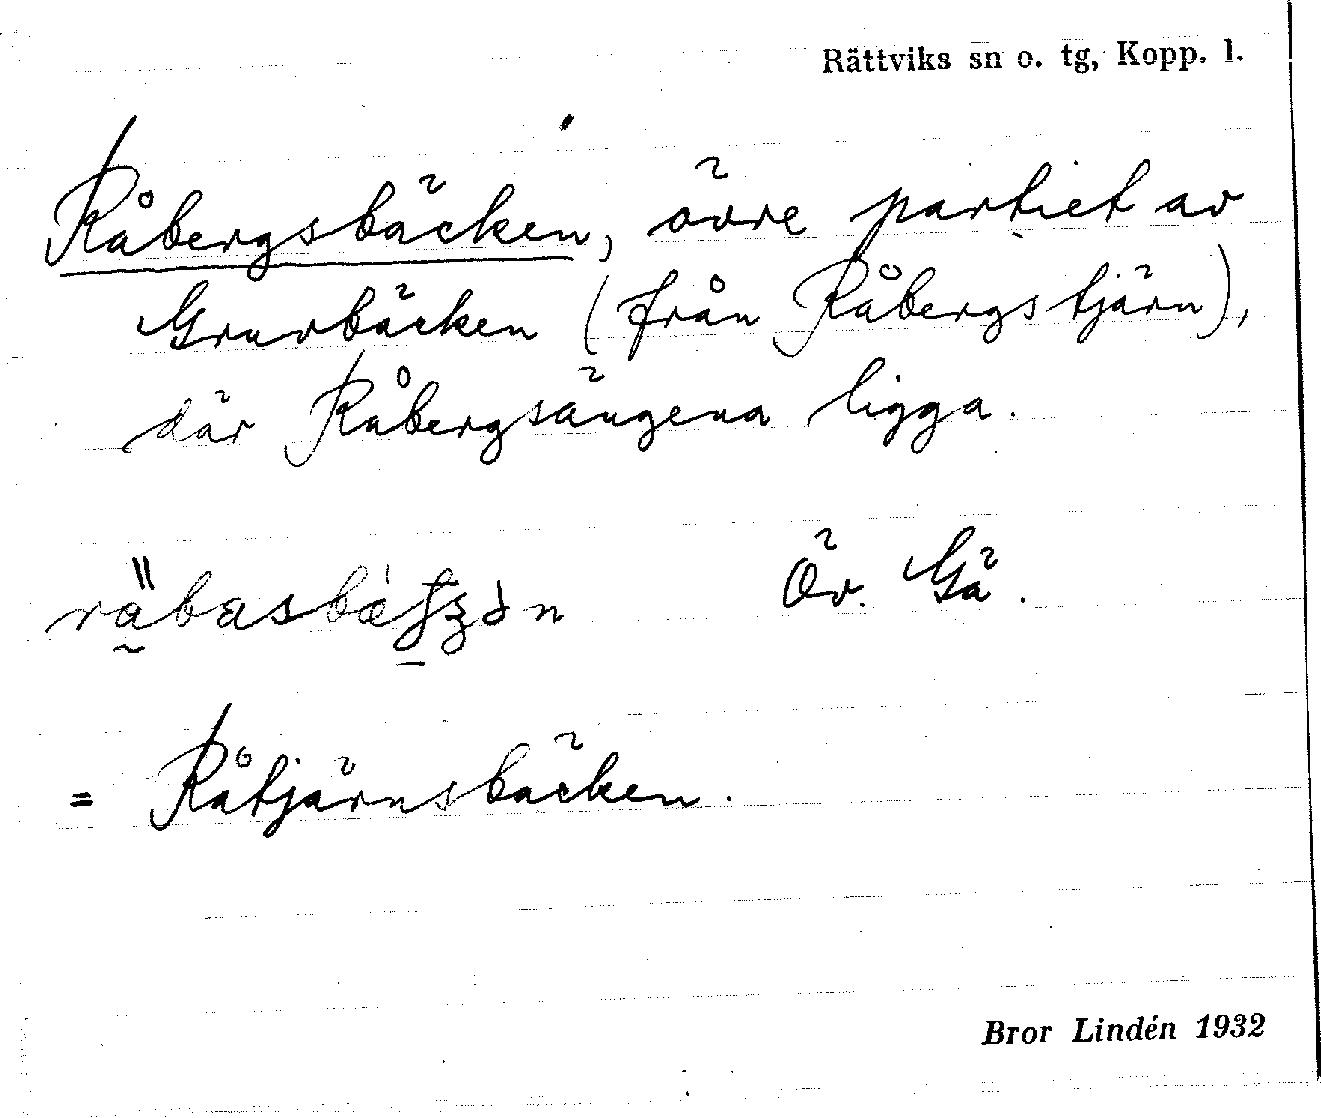 Rättviks sn o. tg, Kopp. l.
Råbergsbäcken, övre partiet av
Gruvbäcken (från Råbergstjärn),
där Råbergsängena ligga.
Öv. Gä.
= Råtjärnsbäcken.
Bror Lindén 1932